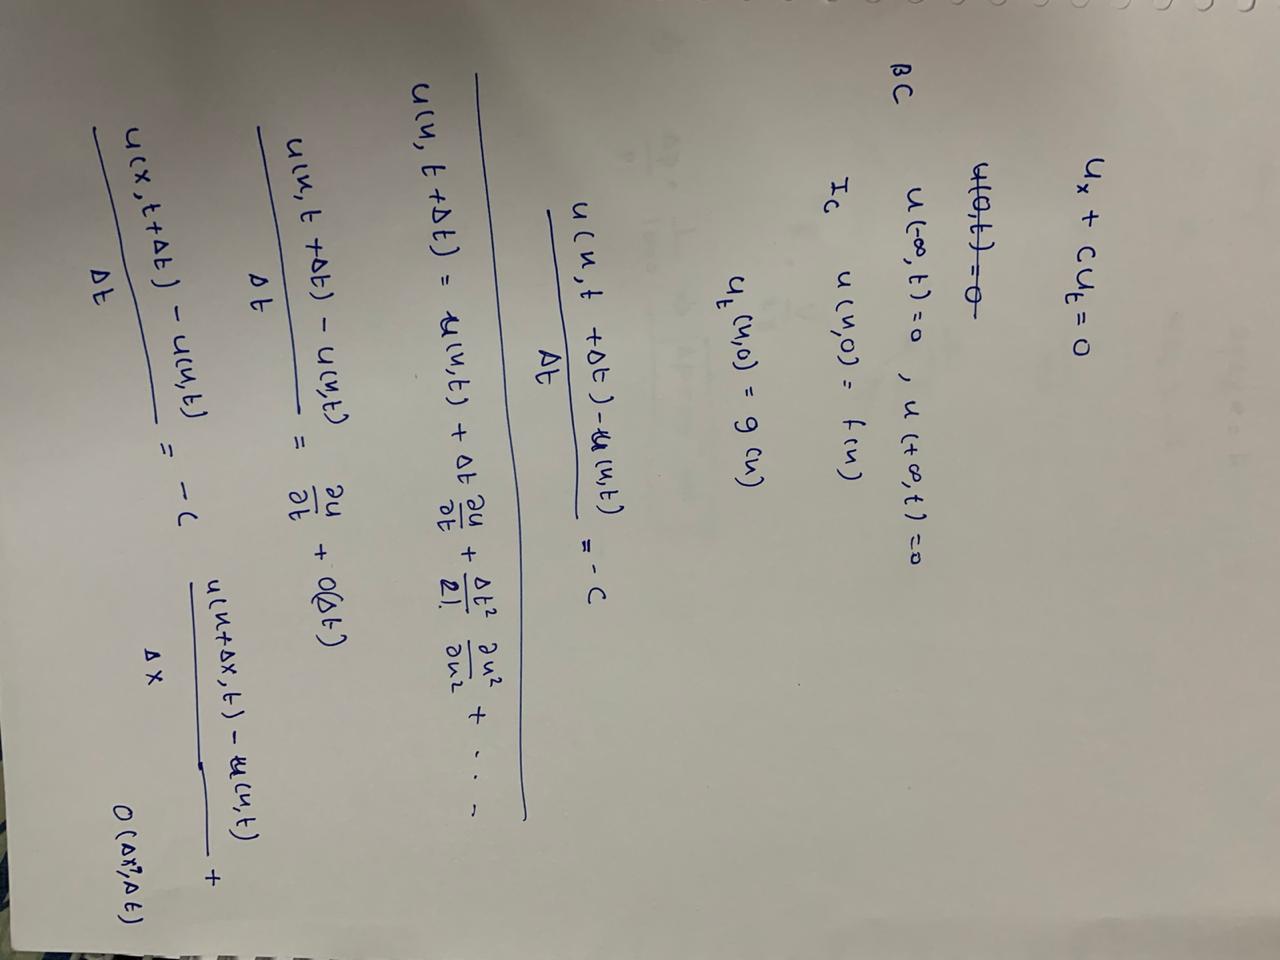 u_x + c u_t = 0
u(0,t) = 0
BC u(-∞,t)=0 , u(+∞,t)=0
Ic u(x,0) = f(x)
u_t (x,0) = g(x)
u(x,t+Δt) - u(x,t) / Δt = - c
u(x, t+Δt) = u(x,t) + Δt ∂u/∂t + Δt²/2! ∂u²/∂u² + ...
u(x,t+Δt) - u(x,t) / Δt = ∂u/∂t + O(Δt)
u(x,t+Δt) - u(x,t) / Δt = - c u(x+Δx,t) - u(x,t) / Δx +
O(Δx²,Δt)